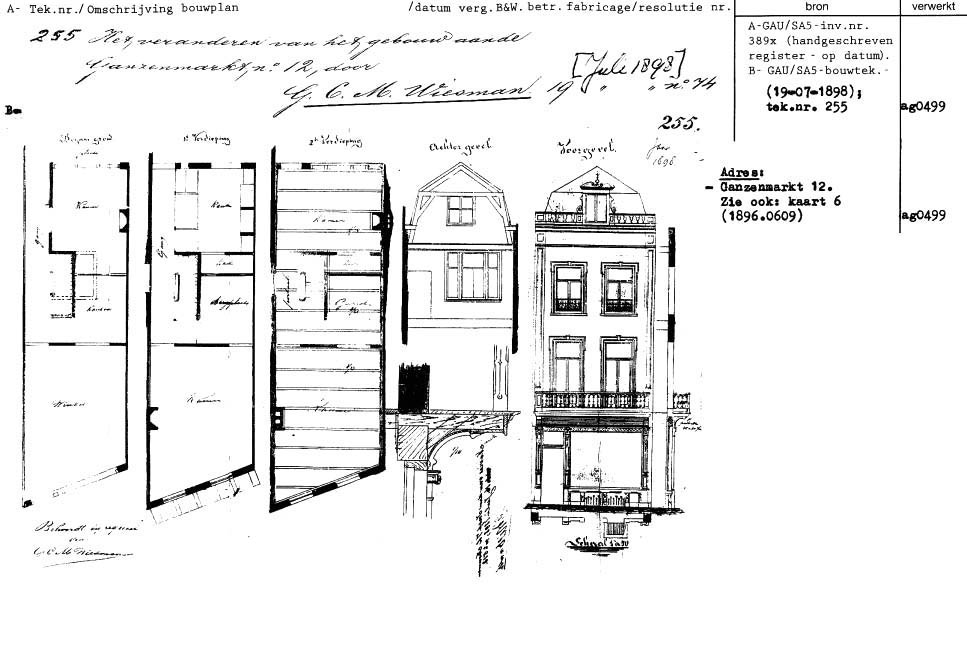 A- Tek.nr./Omschrijving bouwplan
/datum verg.B&W. betr. fabricage/resolutie nr.
bron
verwerkt
255 Het veranderen van het gebouw aan de
Ganzenmarkt, no. 12, door
G. C. M. Wiesman
[Juli 1898]
19 " " no. 74
A-GAU/SA5-inv.nr.
389x (handgeschreven
register - op datum).
B- GAU/SA5-bouwtek.-
(19-07-1898);
tek.nr. 255
ag0499
B-
255.
1896
Adres:
- Ganzenmarkt 12.
Zie ook: kaart 6
(1896.0609)
ag0499
1e Verdieping
2e Verdieping
Achter gevel
Voorgevel.
Kamer
Kamer
Keuken
Winkel
Kamer
Behoort bij request
van
G. C. M. Wiesman
Schaal 1 à 50